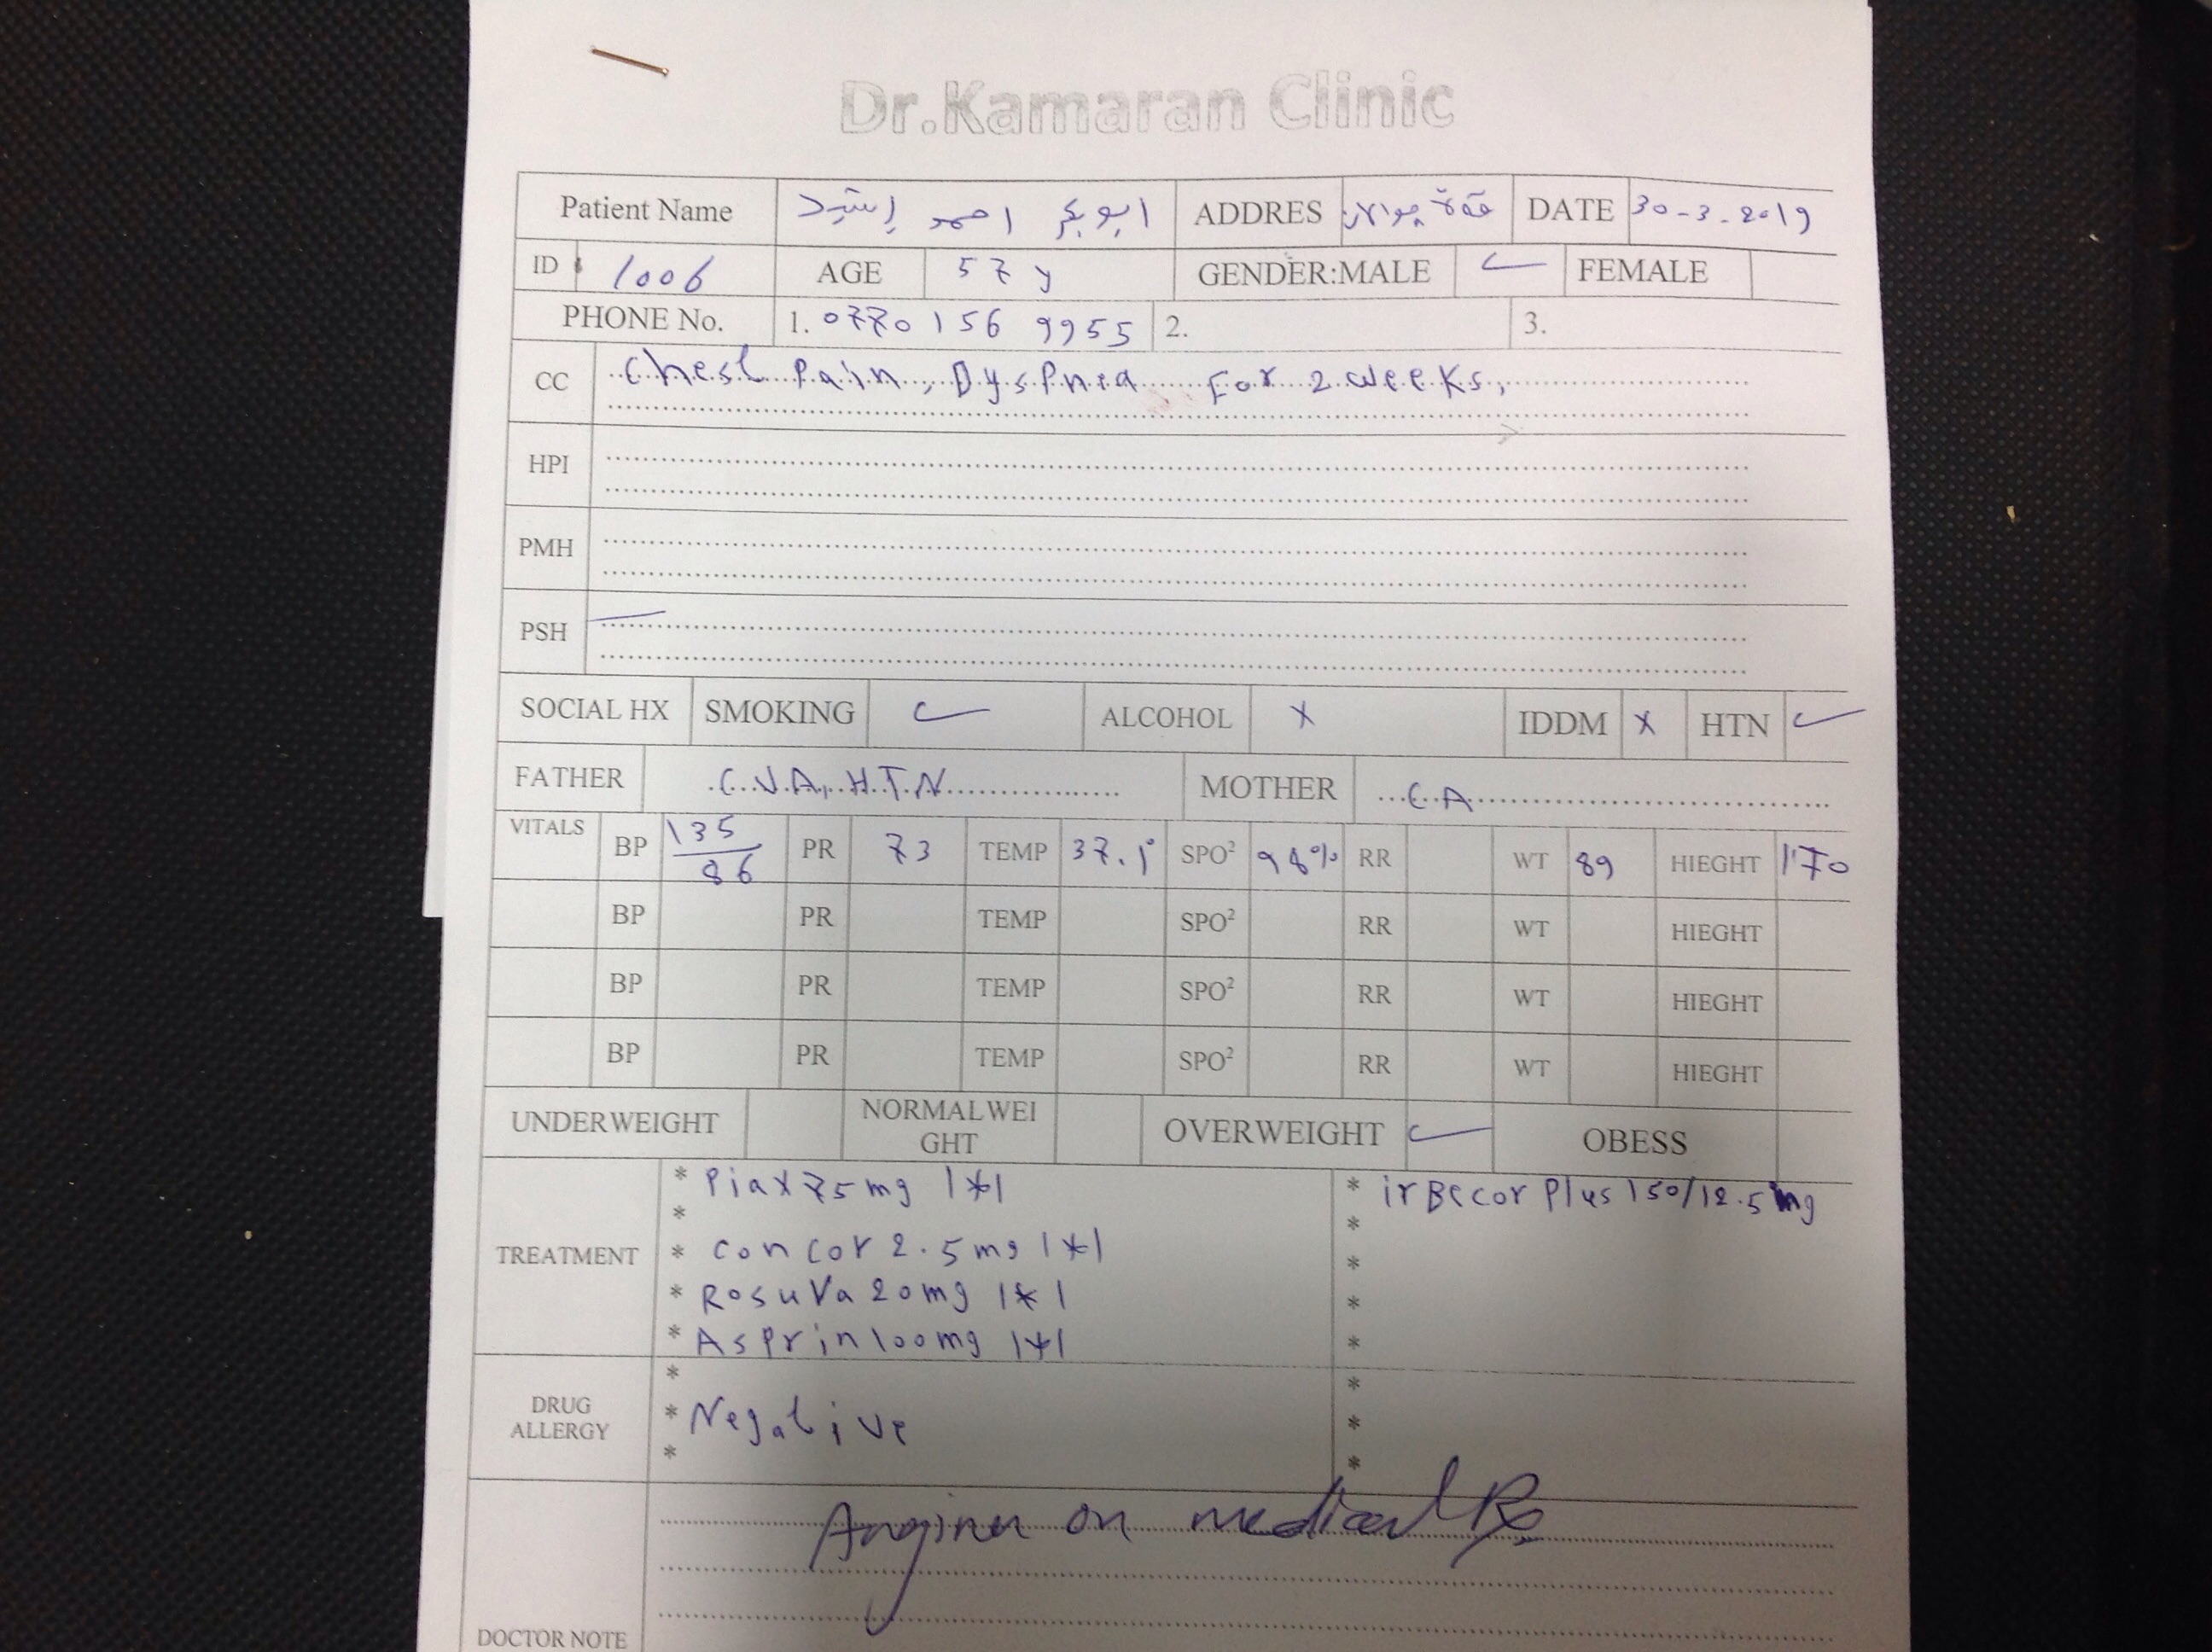 Dr.Kamaran Clinic
Patient Name ابوبكر احمد رشيد ADDRES DATE 30-3-2019
ID 1006 AGE 57 y GENDER:MALE ✓ FEMALE
PHONE No. 1. 0770 156 9955 2. 3.
CC Chest Pain, Dyspnea For 2 weeks,
HPI
PMH
PSH
SOCIAL HX SMOKING ✓ ALCOHOL x IDDM x HTN ✓
FATHER C.V.A, H.T.N MOTHER C.A
VITALS BP 135/86 PR 73 TEMP 37.1° SPO² 98% RR WT 89 HIEGHT 170
BP PR TEMP SPO² RR WT HIEGHT
BP PR TEMP SPO² RR WT HIEGHT
BP PR TEMP SPO² RR WT HIEGHT
UNDERWEIGHT NORMALWEI
GHT OVERWEIGHT ✓ OBESS
TREATMENT
* Piax 75 mg 1*1
*
* concor 2.5 mg 1*1
* Rosuva 20mg 1*1
* Asprin 100mg 1*1
* irBecor Plus 150/12.5 mg
*
*
*
*
DRUG
ALLERGY
*
* Negative
*
*
*
*
DOCTOR NOTE
Angina on medical Rx